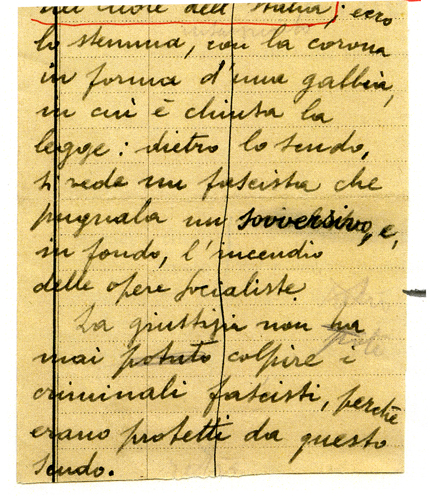 nel cuore dell'Italia; ecco
lo stemma, con la corona
in forma d'una gabbia,
in cui è chiusa la
legge: dietro lo scudo,
si vede un fascista che
pugnala un sovversivo, e,
in fondo, l'incendio
delle opere socialiste
La giustizia non ha
mai potuto colpire i
criminali fascisti, perchè
erano protetti da questo
scudo.